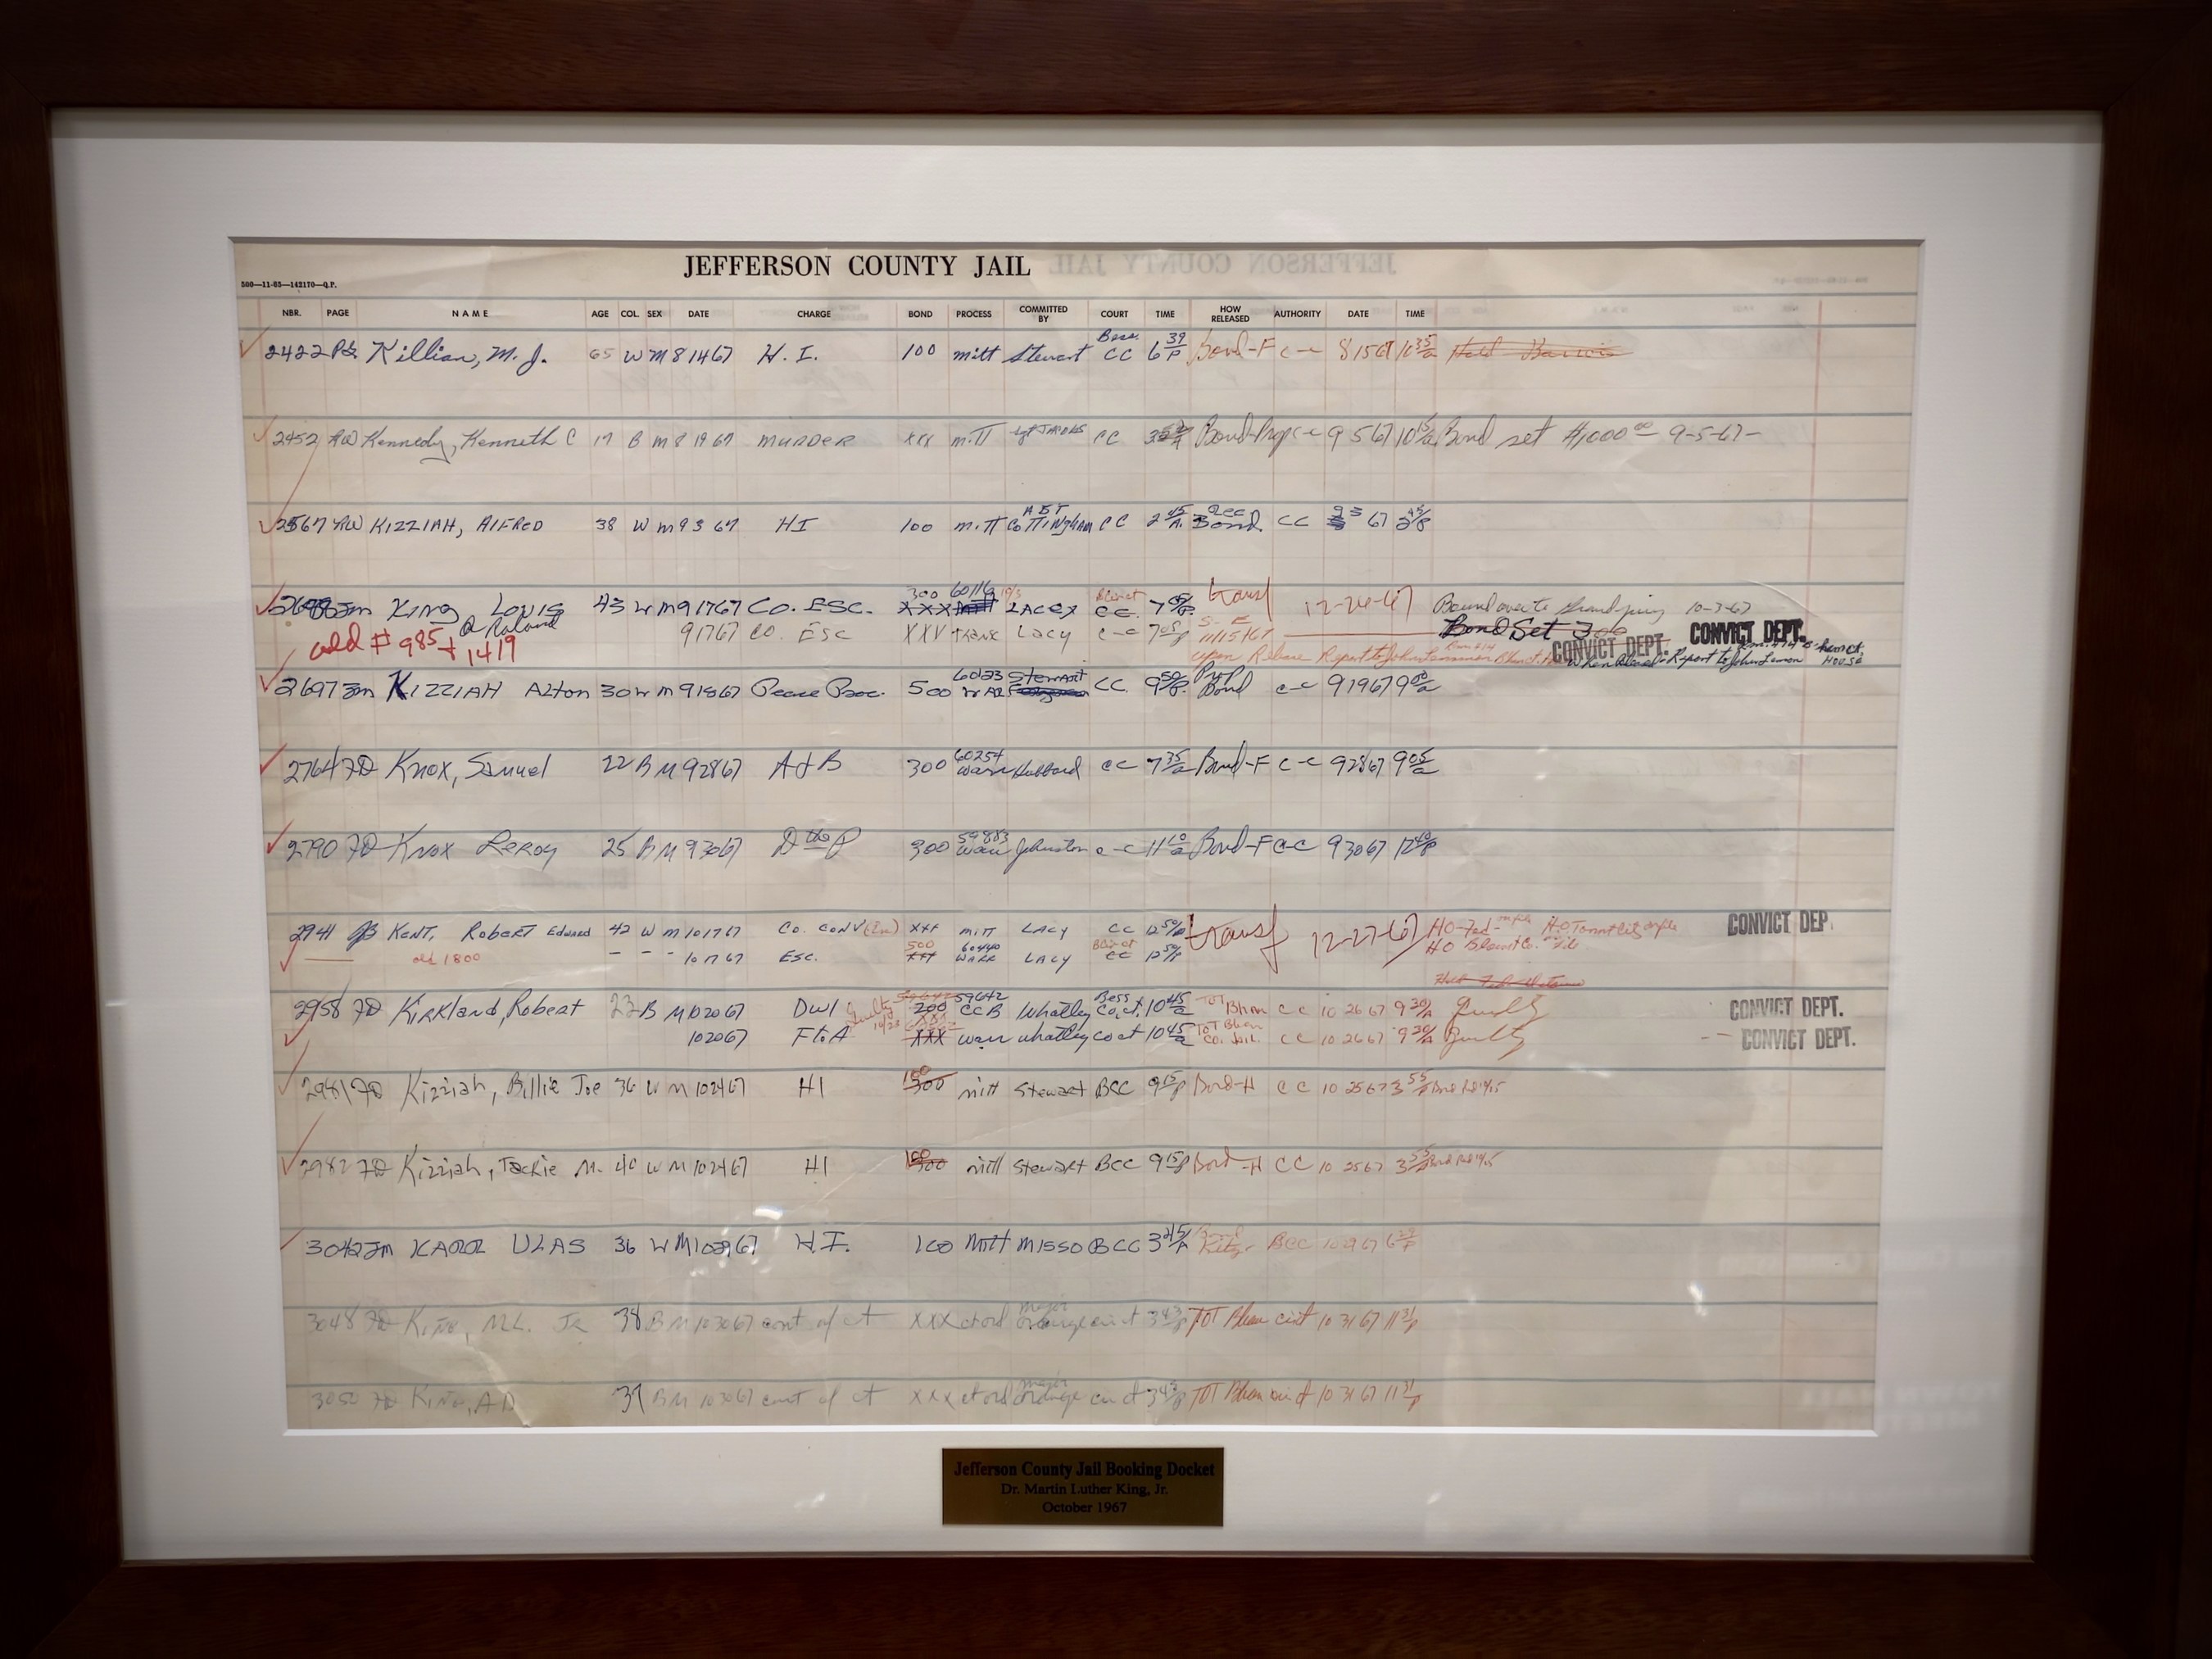 JEFFERSON COUNTY JAIL
500—11-65—142170—Q.P.
NBR. PAGE NAME AGE COL. SEX DATE CHARGE BOND PROCESS COMMITTED BY COURT TIME HOW RELEASED AUTHORITY DATE TIME
Bess.
2422 Killian, M. J. 65 W M 8 14 67 H. I. 100 mitt Stewart CC 6 39/P Bond-F c-c 8 15 67 10 35/a
2452 RW Kennedy, Kenneth C 17 B M 8 19 67 MURDER XXX mitt CC Bond-Prop c-c 9 5 67 10 15/a Bond set $1,000 00 — 9-5-67-
2567 RW KIZZIAH, AlFRED 38 W M 9 3 67 HI 100 mitt Cottingham CC 2 45/A Rec Bond CC 67 2 45/P
300 60116 10/3 Blount
Jm King, Louis 43 W M 9 17 67 Co. ESC. XXX LACEY CC. 7 05/P. transf 12-26-67 Bound over to Grand jury 10-3-67
@ Roland 9 17 67 CO. ESC XXX TRANS LACY c-c 7 05/P Bond Set 300 CONVICT DEPT. CONVICT DEPT.
old # 985 + 1419 11/15/67 upon Release Report to John Lemmon When Released Report to John Lemon HOUSE
60123 Stewart Prop
2697 Jm KIZZIAH Alton 30 W M 9 18 67 Peace Proc. 500 WAR CC. 9 50/P. Bond c-c 9 19 67 9 00/a
60254
2764 JD Knox, Samuel 22 B M 9 28 67 A & B 300 Warr Hubbard cc 7 35/a Bond-F c-c 9 28 67 9 05/a
59883
2790 JD Knox Leroy 25 B M 9 30 67 D the P 300 warr Johnston c-c 11 10/a Bond-F c-c 9 30 67 12 40/P
2941 JB KENT, ROBERT Edward 42 W M 10 17 67 Co. CONV XXX MITT LACY CC 12 50/P transf 12-27-67 HO-Fed- HO Tarrant City CONVICT DEP.
old 1800 - - - 10 17 67 ESC. 500 XXX 60440 WARR LACY Blount CC 12 50/P HO Blount Co.
59642 Bess
2958 JD Kirkland, Robert 23 B M 10 20 67 DWI Guilty 10/23 200 CCB Whatley Co. ct. 10 45/a TOT Bham CC 10 26 67 9 30/A Guilty CONVICT DEPT.
10 20 67 F to A XXX warr whatley co ct 10 45/a TOT Bham Co. Jail. CC 10 26 67 9 30/A Guilty CONVICT DEPT.
2981 JD Kizziah, Billie Joe 36 W M 10 24 67 HI 100 300 mitt Stewart BCC 9 15/P Bond-H CC 10 25 67 3 55/P
2982 JD Kizziah, Jackie M. 40 W M 10 24 67 HI 100 300 mitt Stewart BCC 9 15/P Bond-H CC 10 25 67 3 55/P
3042 Jm ULAS 36 W M 10 29 67 H.I. 100 Mitt MISSO BCC 3 45/A BCC 10 29 67
major
3048 JD King, M.L. Jr 38 B M 10 30 67 cont of ct XXX ct ord orange cir ct 3 43/P TOT Bham cir ct 10 31 67 11 31/P
major
3050 JD King, A D 37 B M 10 30 67 cont of ct XXX ct ord orange cir ct 3 43/P TOT Bham cir ct 10 31 67 11 31/P
Jefferson County Jail Booking Docket
Dr. Martin Luther King, Jr.
October 1967